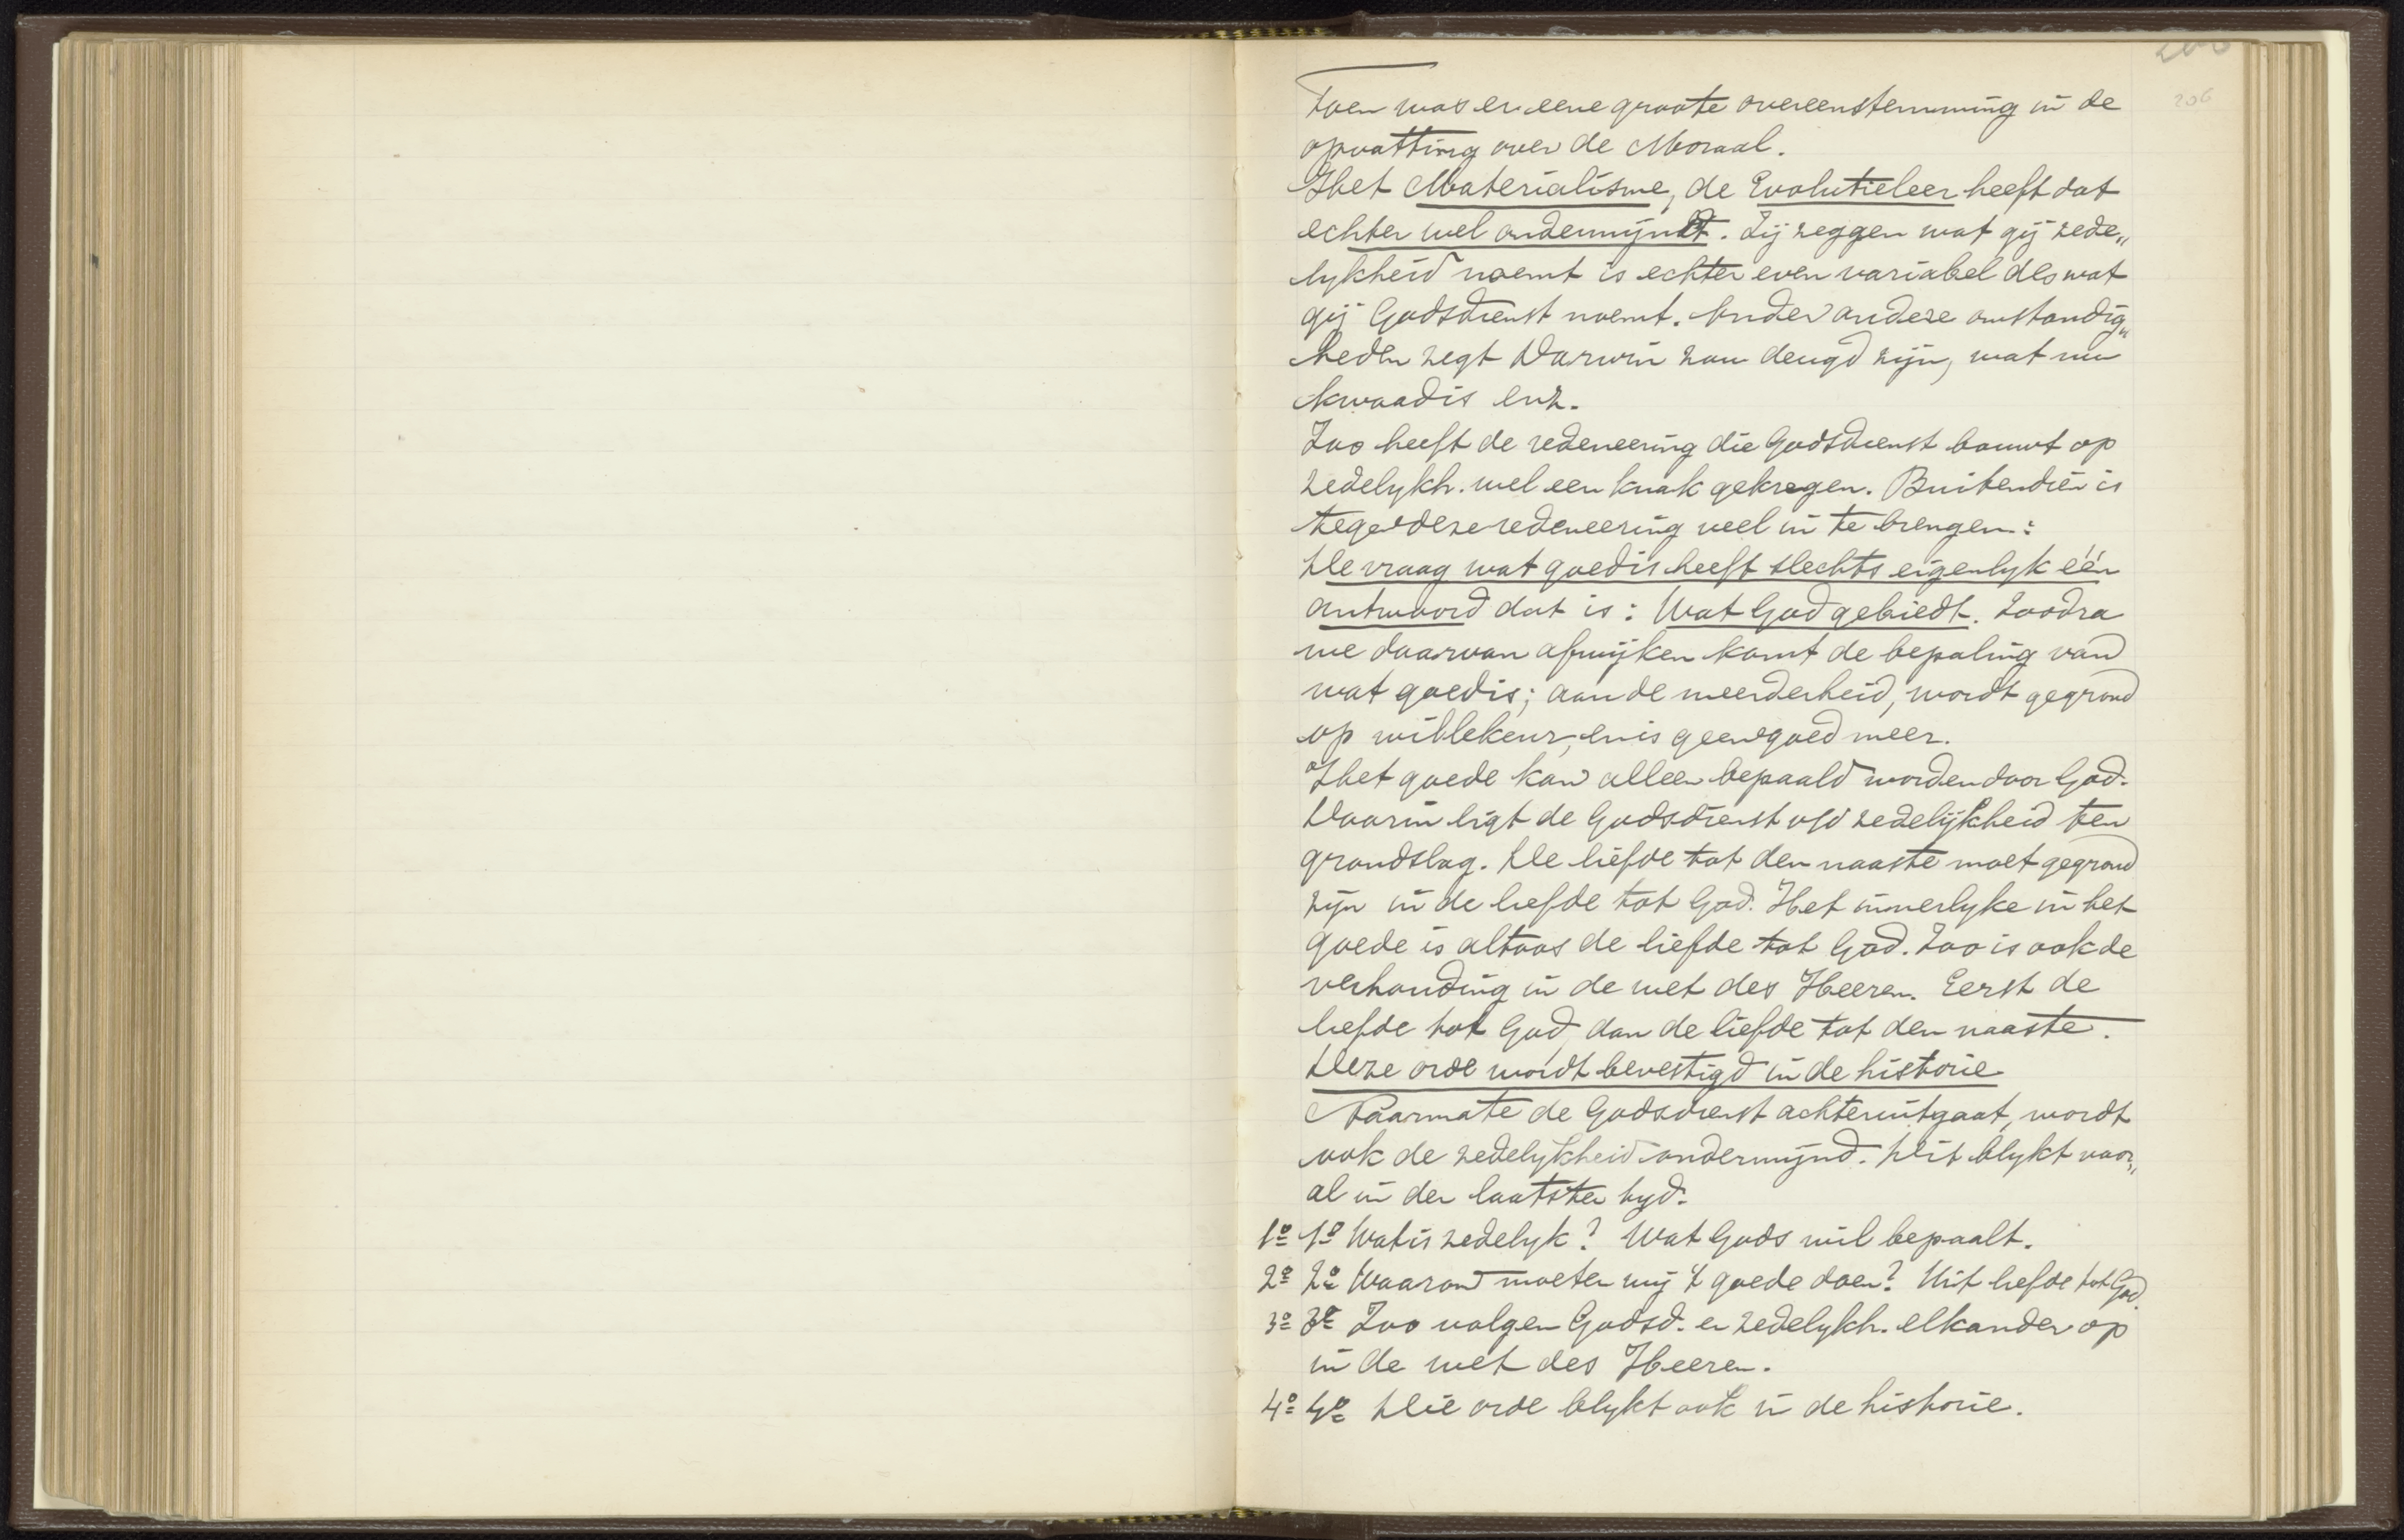 206
Toen was er eene groote overeenstemming in de
opvatting over de Moraal.
Het Materialisme, de Evolutieleer heeft dat
echter wel ondermijndt. Zij zeggen wat gij zede„
lykheid noemt is echter even variabel als wat
gij Godsdienst noemt. Onder andere omstandig„
heden zegt Darwin zou deugd zijn, wat nu
kwaad is enz.
Zoo heeft de redeneering die Godsdienst bouwt op
zedelykh. wel een knak gekregen. Buitendien is
tegen deze redeneering veel in te brengen:
De vraag wat goed is heeft slechts eigenlyk één
antwoord dat is: Wat God gebiedt. Zoodra
we daarvan afwijken komt de bepaling van
wat goed is; aan de meerderheid, wordt gegrond
op willekeur, en is geen goed meer.
Het goede kan alleen bepaald worden door God.
Daarin ligt de Godsdienst v/d zedelijkheid ten
grondslag. De liefde tot den naaste moet gegrond
zijn in de liefde tot God. Het innerlyke in het
goede is altoos de liefde tot God. Zoo is ook de
verhouding in de wet des Heeren. Eerst de
liefde tot God, dan de liefde tot den naaste.
Deze orde wordt bevestigd in de historie
Naarmate de Godsdienst achteruitgaat, wordt
ook de zedelykheid ondermynd. Dit blykt voor„
al in den laatsten tyd.
1º 1º Wat is zedelyk? Wat Gods wil bepaalt.
2º 2º Waarom moeten wij 't goede doen? Uit liefde tot God.
3º 3º Zoo volgen Godsd. en zedelykh. elkander op
in de wet des Heeren.
4º 4º Die orde blykt ook in de historie.